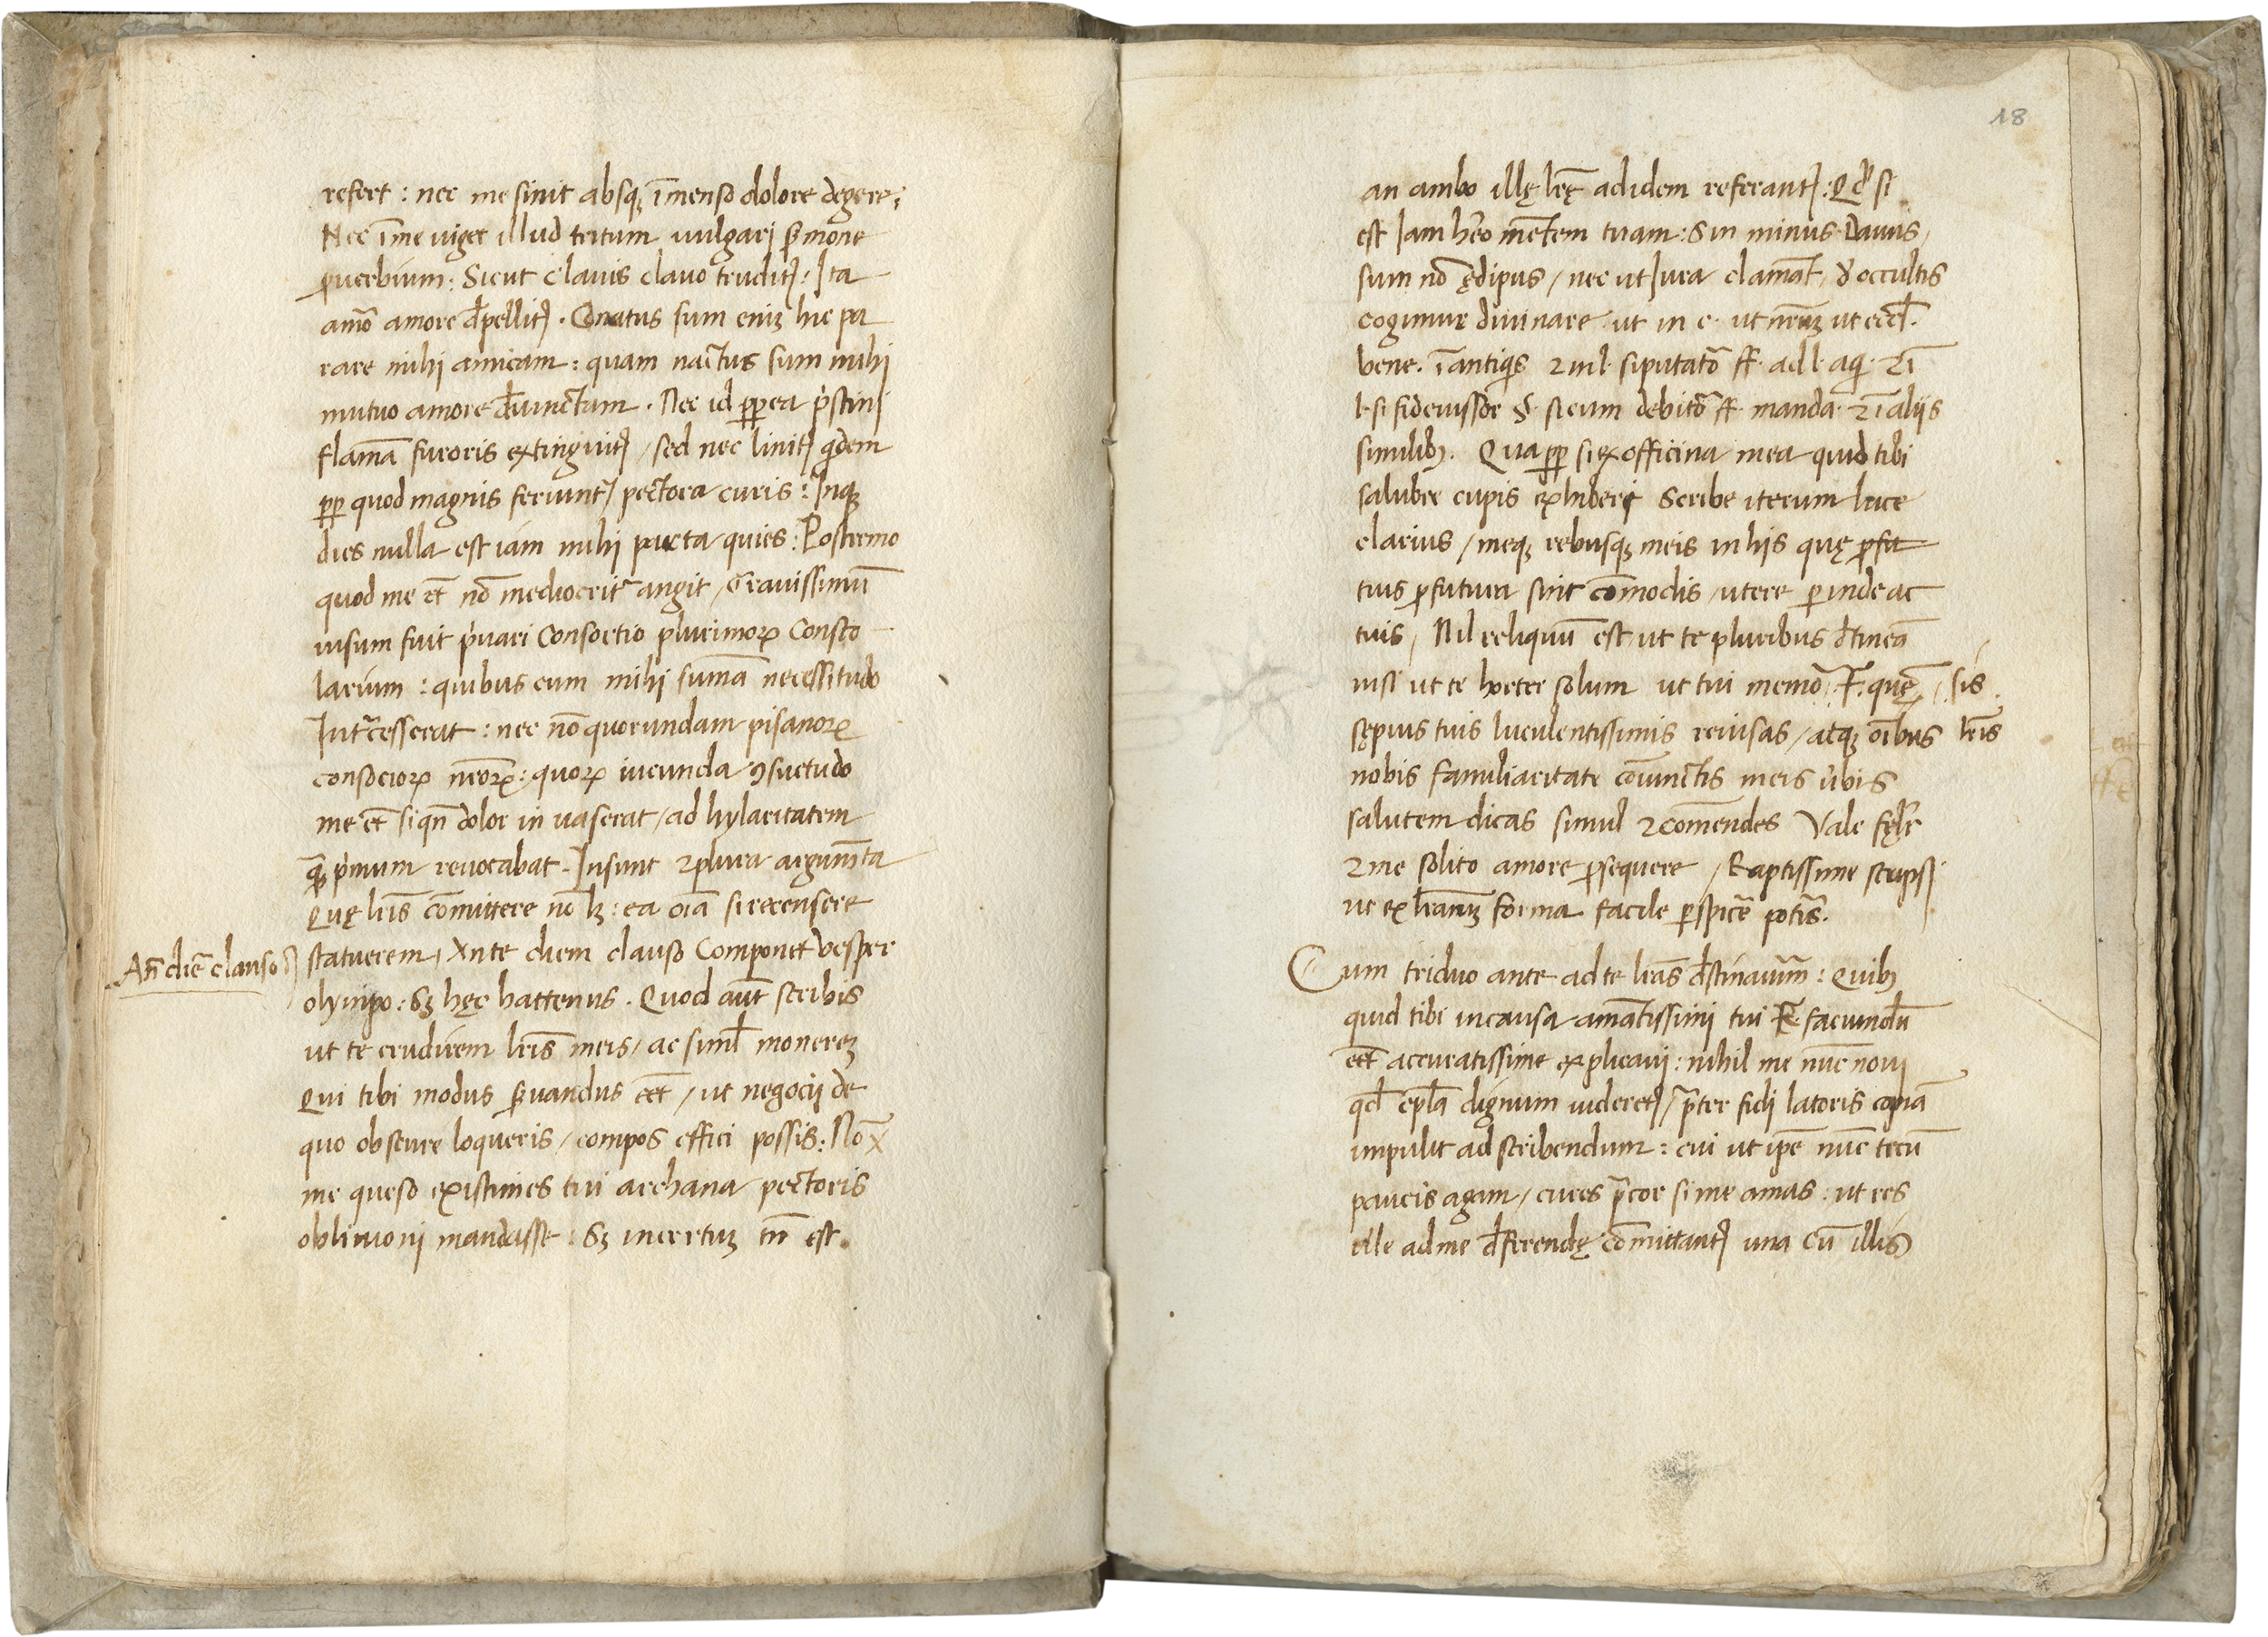 refert : nec me sinit absq; īmenso dolore degere;
Nec ī me uiget illud tritum uulgari s̄mone
ꝓuerbium : Sicut clauis clauo truditꝭ : Ita
amō amore d̄pellitꝭ . Conatus sum eniꝫ hic pa
rare mihi amicam : quam nactus sum mihi
mutuo amore d̄uinctum . Nec id ꝓpterea p̄stinj
flamā furoris extinguitꝭ / sed nec linitꝭ q̇dem
ꝓp quod magnis feriuntꝭ pectora curis : Inqꝫ
dies nulla est iam mihi parta quies : Postremo
quod me et̄ nō mediocrit̄ angit / Grauissimū
uisum fuit p̓uari Consortio plurimoꝝ Consco
larium : quibus cum mihi sumā necessitudo
Int̄cesserat : nec nō quorundam pisanoꝝ
consocioꝝ n̄roꝝ : quoꝝ iucunda ꝯsuetudo
me et̄ siqn̄ dolor in uaserat / ad hylaritatem
qua̅ p̓mum reuocabat . Insunt ⁊ plura argum̄ta
Quę lr̄is cōmittere nō lꝫ : ea oīa si recensere
An̄ diē clauso
statuerem / Ante diem clauso Componet Vesper
olympo : Sꝫ hęc hattenus . Quod aūt scribis
ut te erudirem lr̄is meis / ac siml̄ monereꝫ
Qui tibi modus s̄uandus eēt / ut negocij de
quo obscure loqueris / compos effici possis : Nō
me queso existimes tui archana pectoris
obliuioni mandasse : Sꝫ incertuꝫ tn̄ est.
18
an ambo illę lr̄ę ad idem referantꝭ : Qd̄ si
est Iam hēo mētem tuam : Sin minus Dauus /
sum nō ędipus / nec ut Iura clamāt / d̓ occultis
cogimur diuinare ut in c. ut n̄ram ut eccl̄.
bene . ī antiqis ⁊ in l. si putatō ff. ad l. aq̇. ⁊ ī
l. si fideiussor §. si cum debitō ff. manda. ⁊ ī aliis
similibꝫ . Quaꝓp si ex officina mea quid tibi
salubre cupis exhiberi Scribe iterum luce
clarius / meqꝫ rebusqꝫ meis in his quę ꝓfu
tuis ꝓfutura sint cōmodis / utere ꝑinde ac
tuis / Nil reliquū est ut te pluribus d̄tineā
nisi ut te horter solum ut tui memō . F. quę / sis
sępius tuis luculentissimis reuisas / atqꝫ oībus lr̄is
nobis familiaritate cōiunctis meis ūbis
salutem dicas simul ⁊ comēndes Vale fęlr̄
⁊ me solito amore ꝓsequere / Raptissime scripsj
ut ex lr̄arum forma facile ꝑspicē pot̄is.
Cum triduo ante ad te lr̄as d̄stinauim̄ : Quibꝫ
quid tibi in causa amātissimi tui F. faciundū
eēt accuratissime explicaui : nihil me nūc nouj
qd̄ epl̄a dignum uideretꝭ / p̄ter fidj latoris copiā
impulit ad scribendum : cui ut ip̄e nūc tecū
paucis agam / cures p̄cor si me amas : ut res
ille ad me d̄ferendę cōmittantꝭ una cū illis